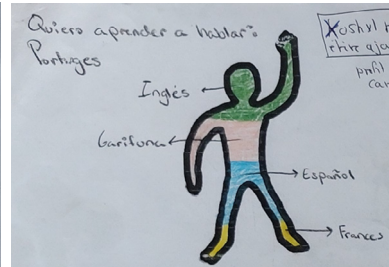 Quiero aprender a hablar:
Portuges
Inglés
Garifuna
Español
Frances